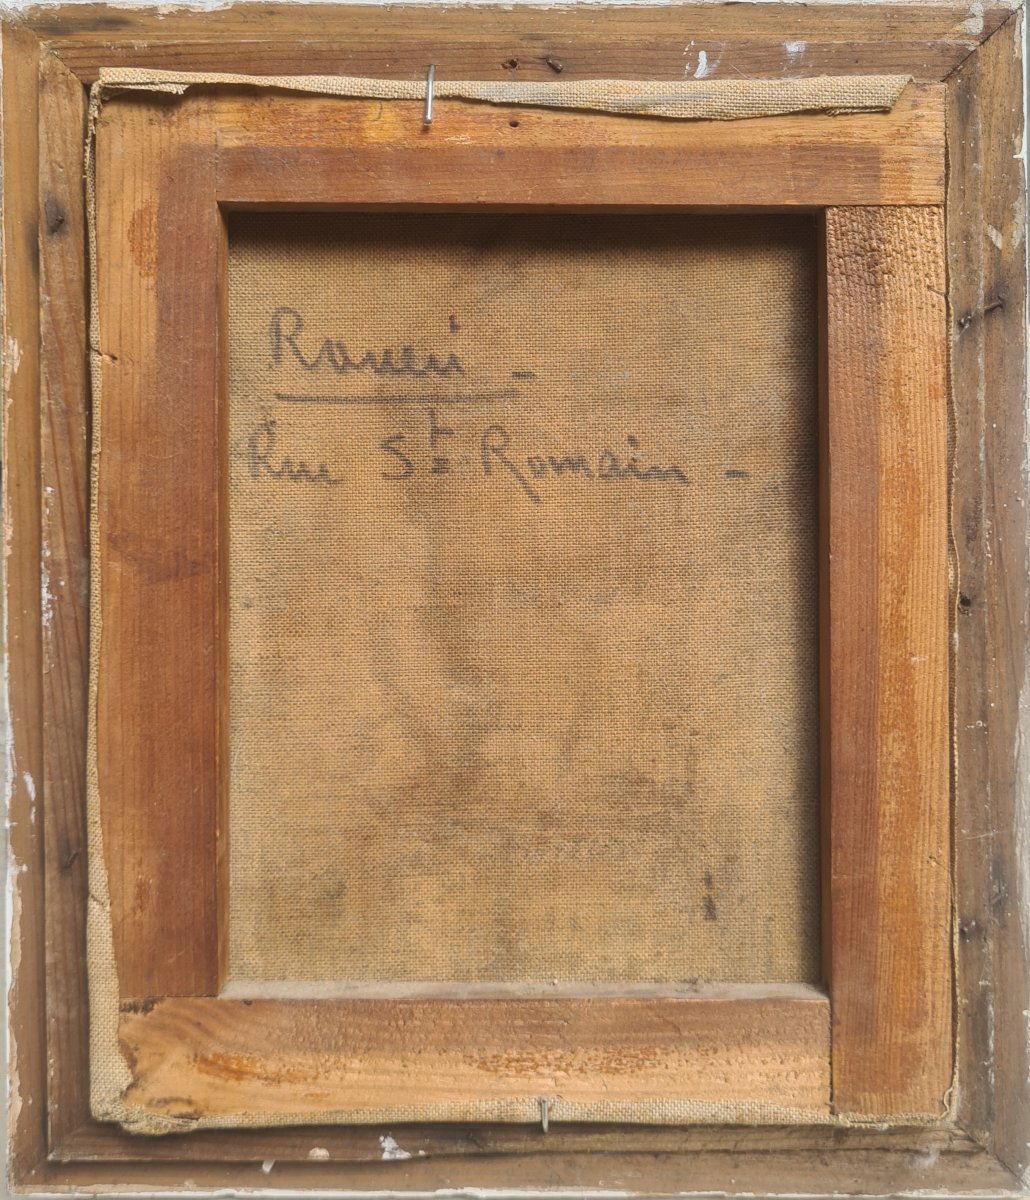 Rouen -
Rue St Romain -